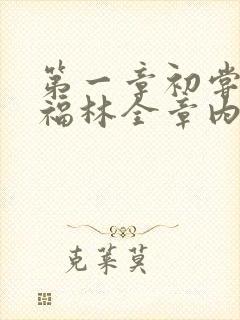 第一章初尝
福林全章内
克莱莫